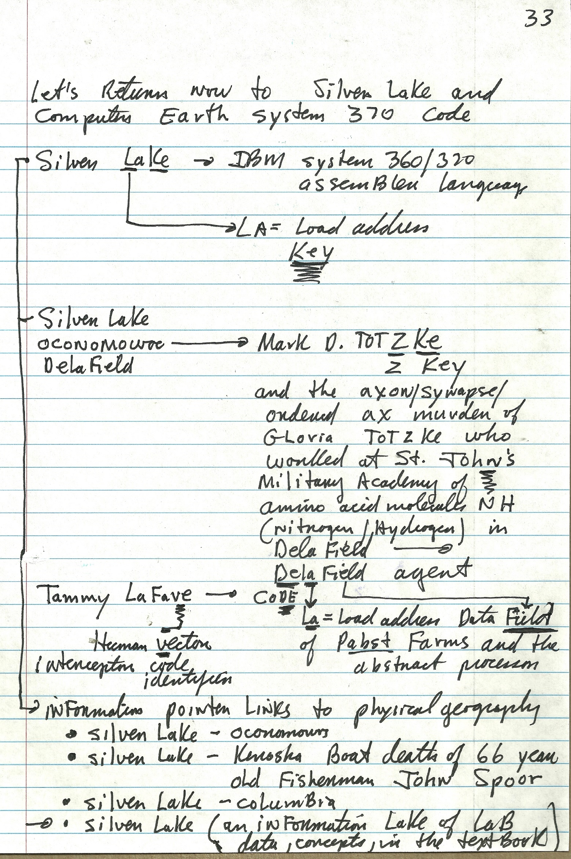 33
Let's Return now to Silver Lake and
Computer Earth system 370 Code
Silver Lake → IBM system 360/370
assembler language
LA = Load address
Key
Silver Lake
Oconomowoc → Mark D. ToTZKe
DelaField Z Key
and the axon/synapse/
ordered ax murder of
Gloria ToTZKe who
worked at St. John's
Military Academy of
amino acid molecule NH
(Nitrogen/Hydrogen) in
DelaField →
DelaField agent
Tammy LaFave → CODE
La = Load address Data Field
Human vector of Pabst Farms and the
interceptor code abstract processor
identifier
→ information pointer Links to physical geography
• silver Lake - Oconomowoc
• silver Lake - Kenosha Boat death of 66 year
old Fisherman John Spoor
• silver Lake - columbia
→ • silver Lake (an information Lake of LaB
data, concepts, in the textBook)